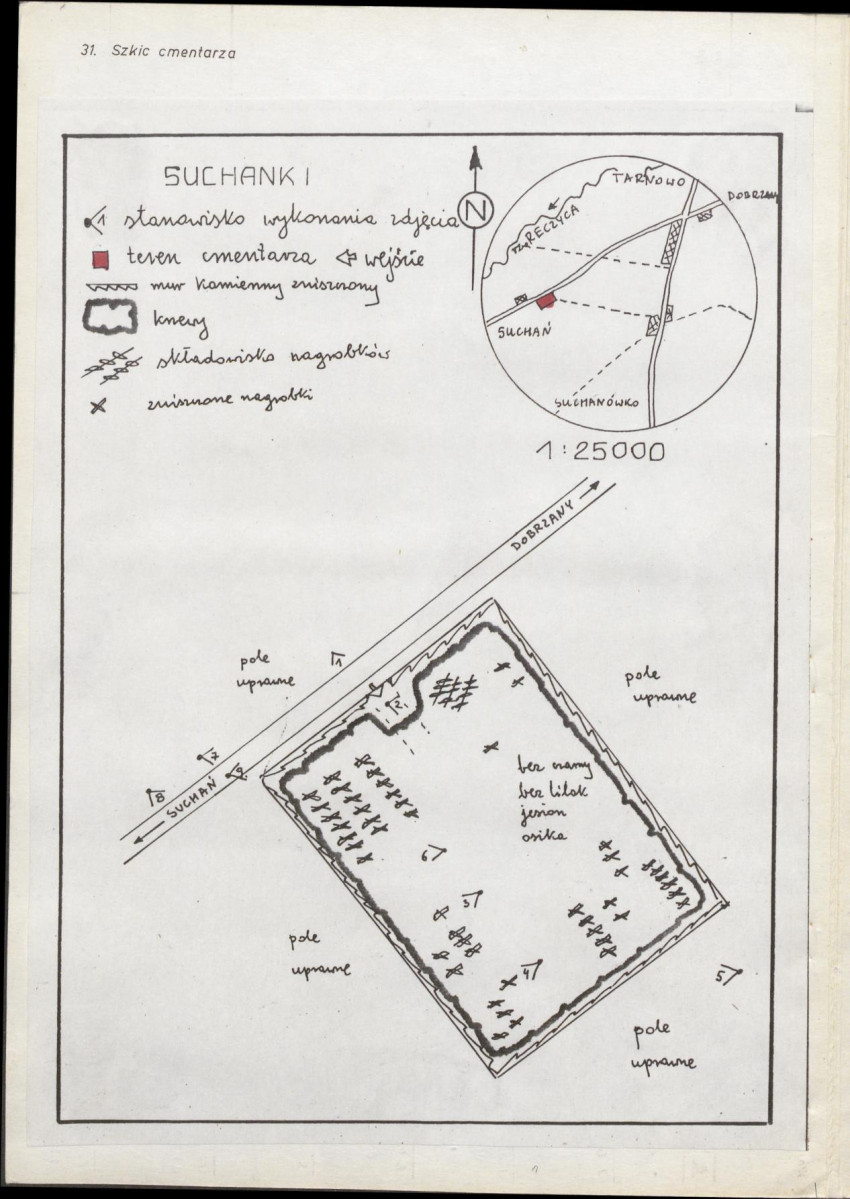 31. Szkic cmentarza
SUCHANKI
1 stanowisko wykonania zdjęcia
teren cmentarza wejście
mur kamienny zniszczony
krzewy
składowisko nagrobków
zniszczone nagrobki
N
TARNOWO
DOBRZANY
rz. RECZYCA
SUCHAŃ
SUCHANÓWKO
1:25000
DOBRZANY
pole
uprawne
1
pole
uprawne
2
7
9
8
SUCHAŃ
bez czarny
bez lilak
jesion
osika
6
3
pole
uprawne
4
5
pole
uprawne